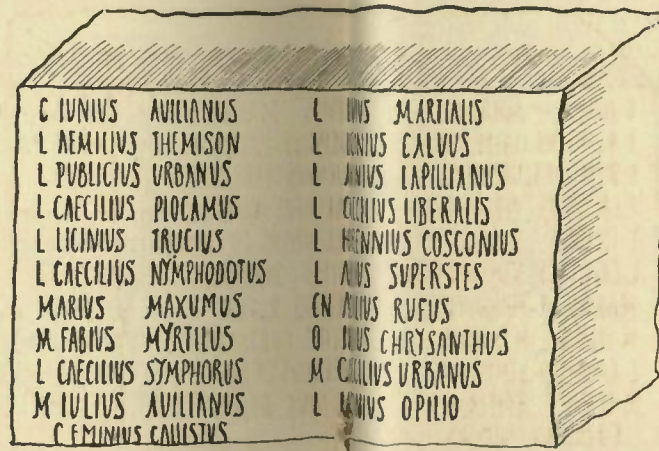 C IUNIUS AUILIANUS
L AEMILIUS THEMISON
L PUBLICIUS URBANUS
L CAECILIUS PLOCAMUS
L LICINIUS TRUCIUS
L CAECILIUS NYMPHODOTUS
MARIUS MAXUMUS
M FABIUS MYRTILUS
L CAECILIUS SYMPHORUS
M IULIUS AUILIANUS
C EMINIUS CALLISTUS
L MARTIALIS
L CALUUS
L LAPILLIANUS
L LIBERALIS
L COSCONIUS
L SUPERSTES
CN RUFUS
CHRYSANTHUS
M URBANUS
L OPILIO